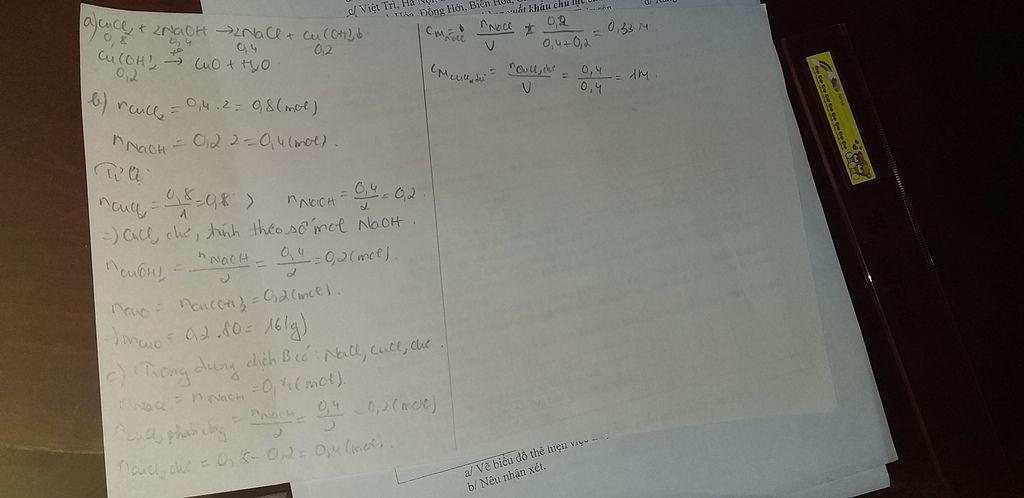 c/ Việt Trì, Hà Nội,
Đồng Hới, Biên Hòa,
xuất khẩu chủ lực
a) CuCl₂ + 2NaOH → 2NaCl + Cu(OH)₂↓
0,8 0,4 0,4 0,2
Cu(OH)₂ →t° CuO + H₂O
0,2
b) nCuCl₂ = 0,4.2 = 0,8 (mol)
nNaOH = 0,2 2 = 0,4 (mol).
Tỉ lệ:
nCuCl₂ = 0,8/1 = 0,8 > nNaOH = 0,4/2 = 0,2.
=> CuCl₂ dư, tính theo số mol NaOH.
nCu(OH)₂ = nNaOH/2 = 0,4/2 = 0,2 (mol).
nCuO = nCu(OH)₂ = 0,2 (mol).
=> mCuO = 0,2.80 = 16 (g)
c) Trong dung dịch B có: NaCl, CuCl₂ dư.
nNaCl = nNaOH = 0,4 (mol).
nCuCl₂ phản ứng = nNaOH/2 = 0,4/2 = 0,2 (mol)
nCuCl₂ dư = 0,8 - 0,2 = 0,4 (mol).
CM NaCl = nNaCl/V = 0,2/0,4+0,2 = 0,33 M
CM CuCl₂ dư = nCuCl₂ dư/V = 0,4/0,4 = 1M.
a/ Vẽ biểu đồ thể hiện
b/ Nêu nhận xét.